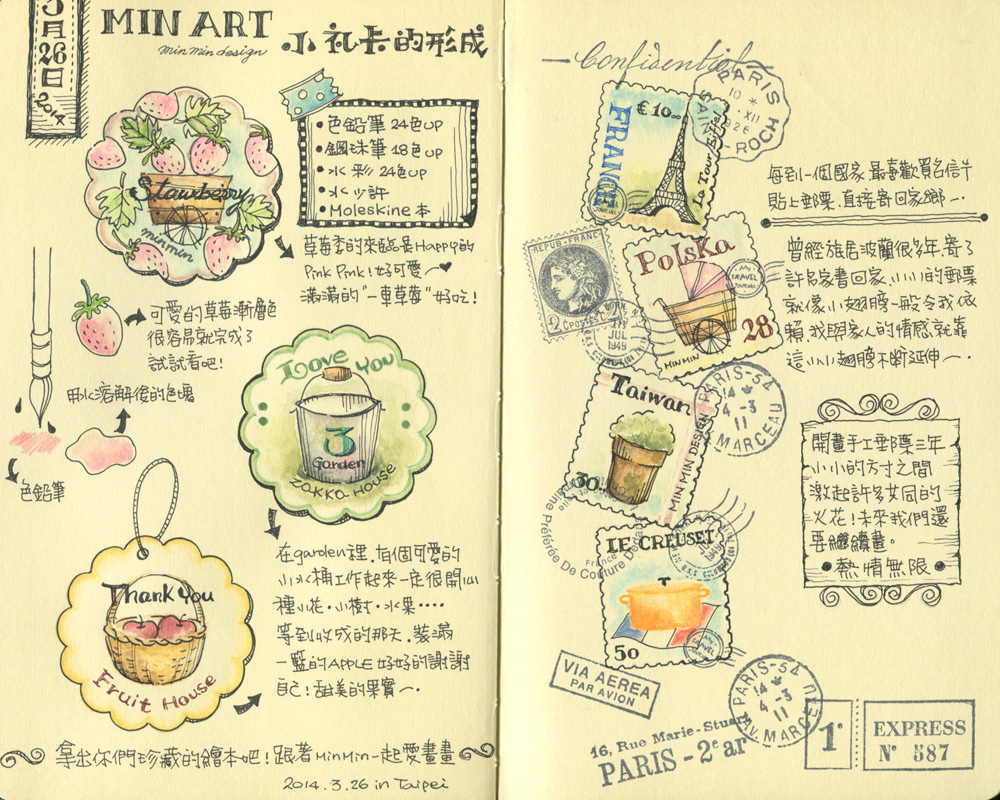 3月26日 2014
MIN ART
min min design
小礼卡的形成
Stawberry
minmin
•色鉛筆 24色up
•鋼珠筆 18色up
•水彩 24色up
•水少許
•Moleskine本
草莓季的來臨是Happy的
Pink Pink!好可愛~♥
滿滿的"一車草莓"好吃!
可愛的草莓漸層色
很容易就完成了
試試看吧!
用水溶解後的色塊
色鉛筆
I Love You
3
Garden
zakka House
在garden裡.有個可愛的
小水桶工作起來一定很開心
種小花.小樹.水果....
等到收成的那天.裝滿
一籃的APPLE好好的謝謝
自己!甜美的果實~.
Thank You
Fruit House
拿出你們珍藏的繪本吧!跟著MinMin一起愛畫畫
2014.3.26 in Taipei
Confidential
PARIS
10 *
XII
26
ST ROCH
€10
FRANCE
La Tour Eiffel
每到一個國家.最喜歡買名信片
貼上郵票.直接寄回家鄉~.
REPUB. FRANC.
2
POSTES
JUL
1949
Polska
MY TRAVEL JOURNAL
28
MIN MIN
曾經旅居波蘭很多年.寄了
許多家書回家.小小的郵票
就像小翅膀一般令我依
賴.我與家人的情感.就靠
這小小翅膀不斷延伸~.
Taiwan
30
MIN MIN DESIGN
PARIS-54
14 *
4 -3
11
MARCEAU
開畫手工郵票三年
小小的方寸之間
激起許多不同的
火花!未來我們還
要繼續畫。
•熱情無限•
Préférée De Couture
LE CREUSET
50
VIA AEREA
PAR AVION
PARIS-54
14 *
4 -3
11
AV. MARCEAU
16, Rue Marie-Stuart
PARIS - 2e ar
1e
EXPRESS
N° 587